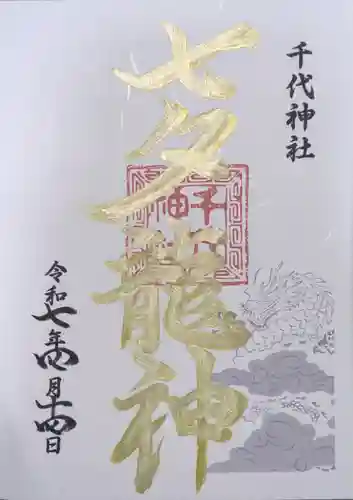 千代神社
七夕龍神
令和七年四月十四日